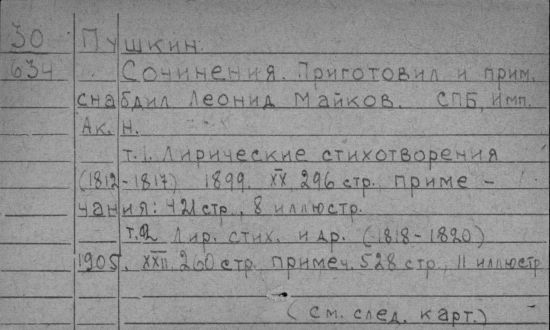 30 Пушкин.
634 Сочинения. Приготовил и прим.
снабдил Леонид Майков. СПБ, Имп.
Ак. Н.
т. 1. Лирические стихотворения
(1812-1817) 1899. XX, 296 стр., приме-
чания: 421 стр., 8 иллюстр.
т. 2. Лир. стих. и др. (1818-1820)
1905. XXII, 260 стр. примеч. 528 стр., 11 иллюстр
(см. след. карт.)